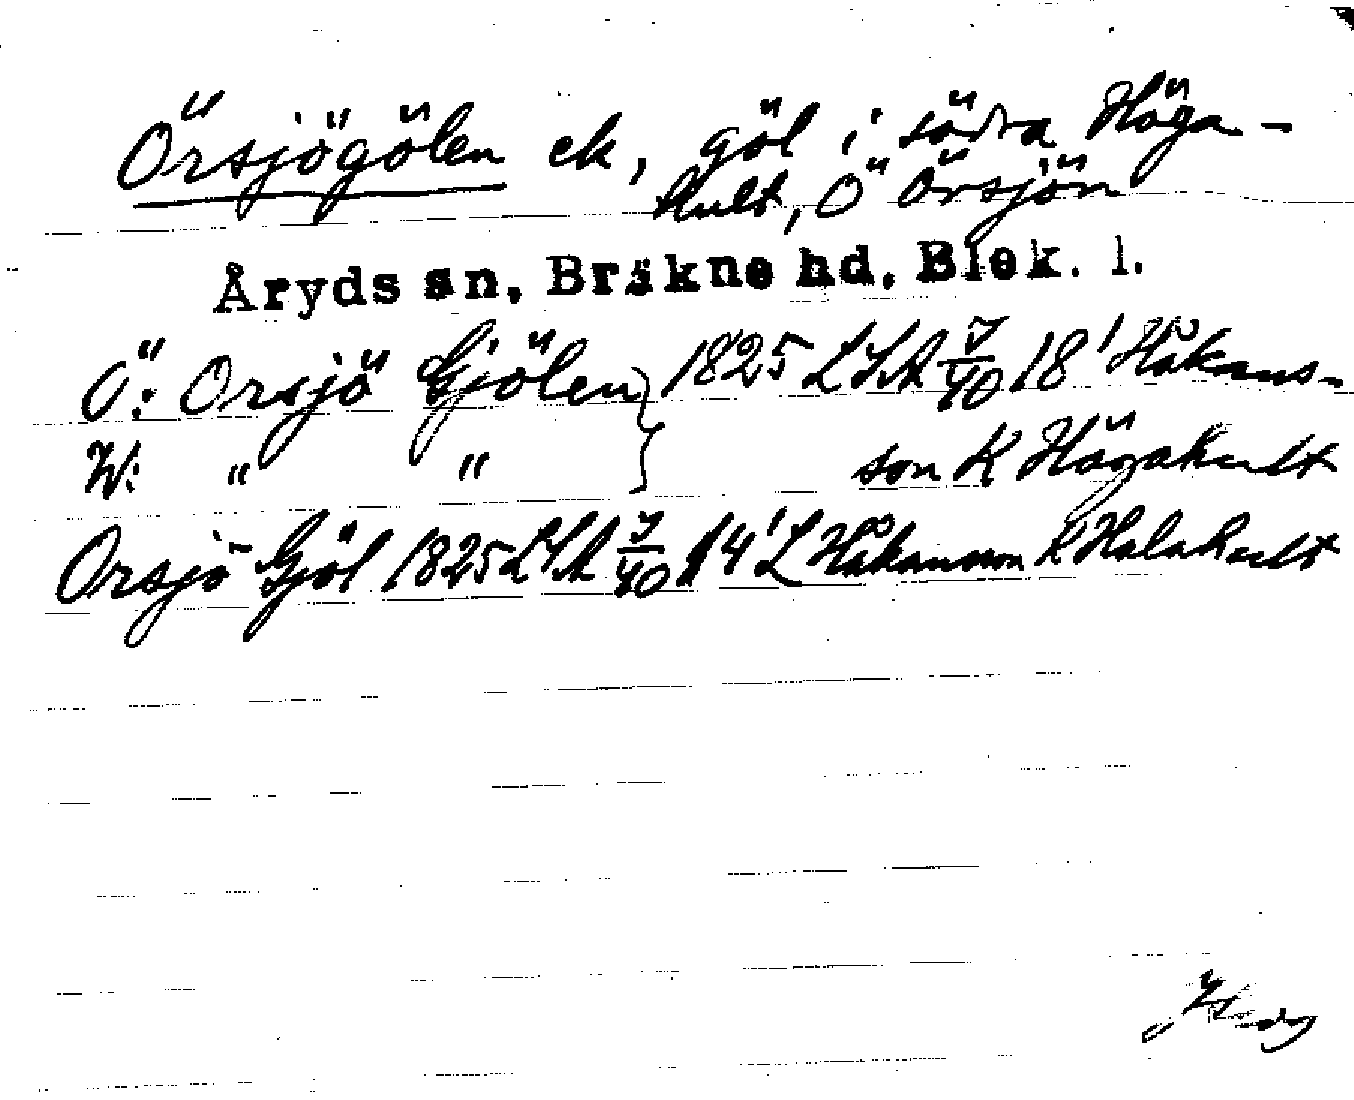 Örsjögölen ek, göl i södra Höga-
kult, Ö Örsjön
Åryds sn, Bräkne hd, Blek. l.
Ö: Örsjö Gjölen } 1825 LSA 7/40 18' Håkans-
W: " " son K Högakult
Orsjö Gjöl 1825 LSA 7/40 14' L Håkansson K Halakult